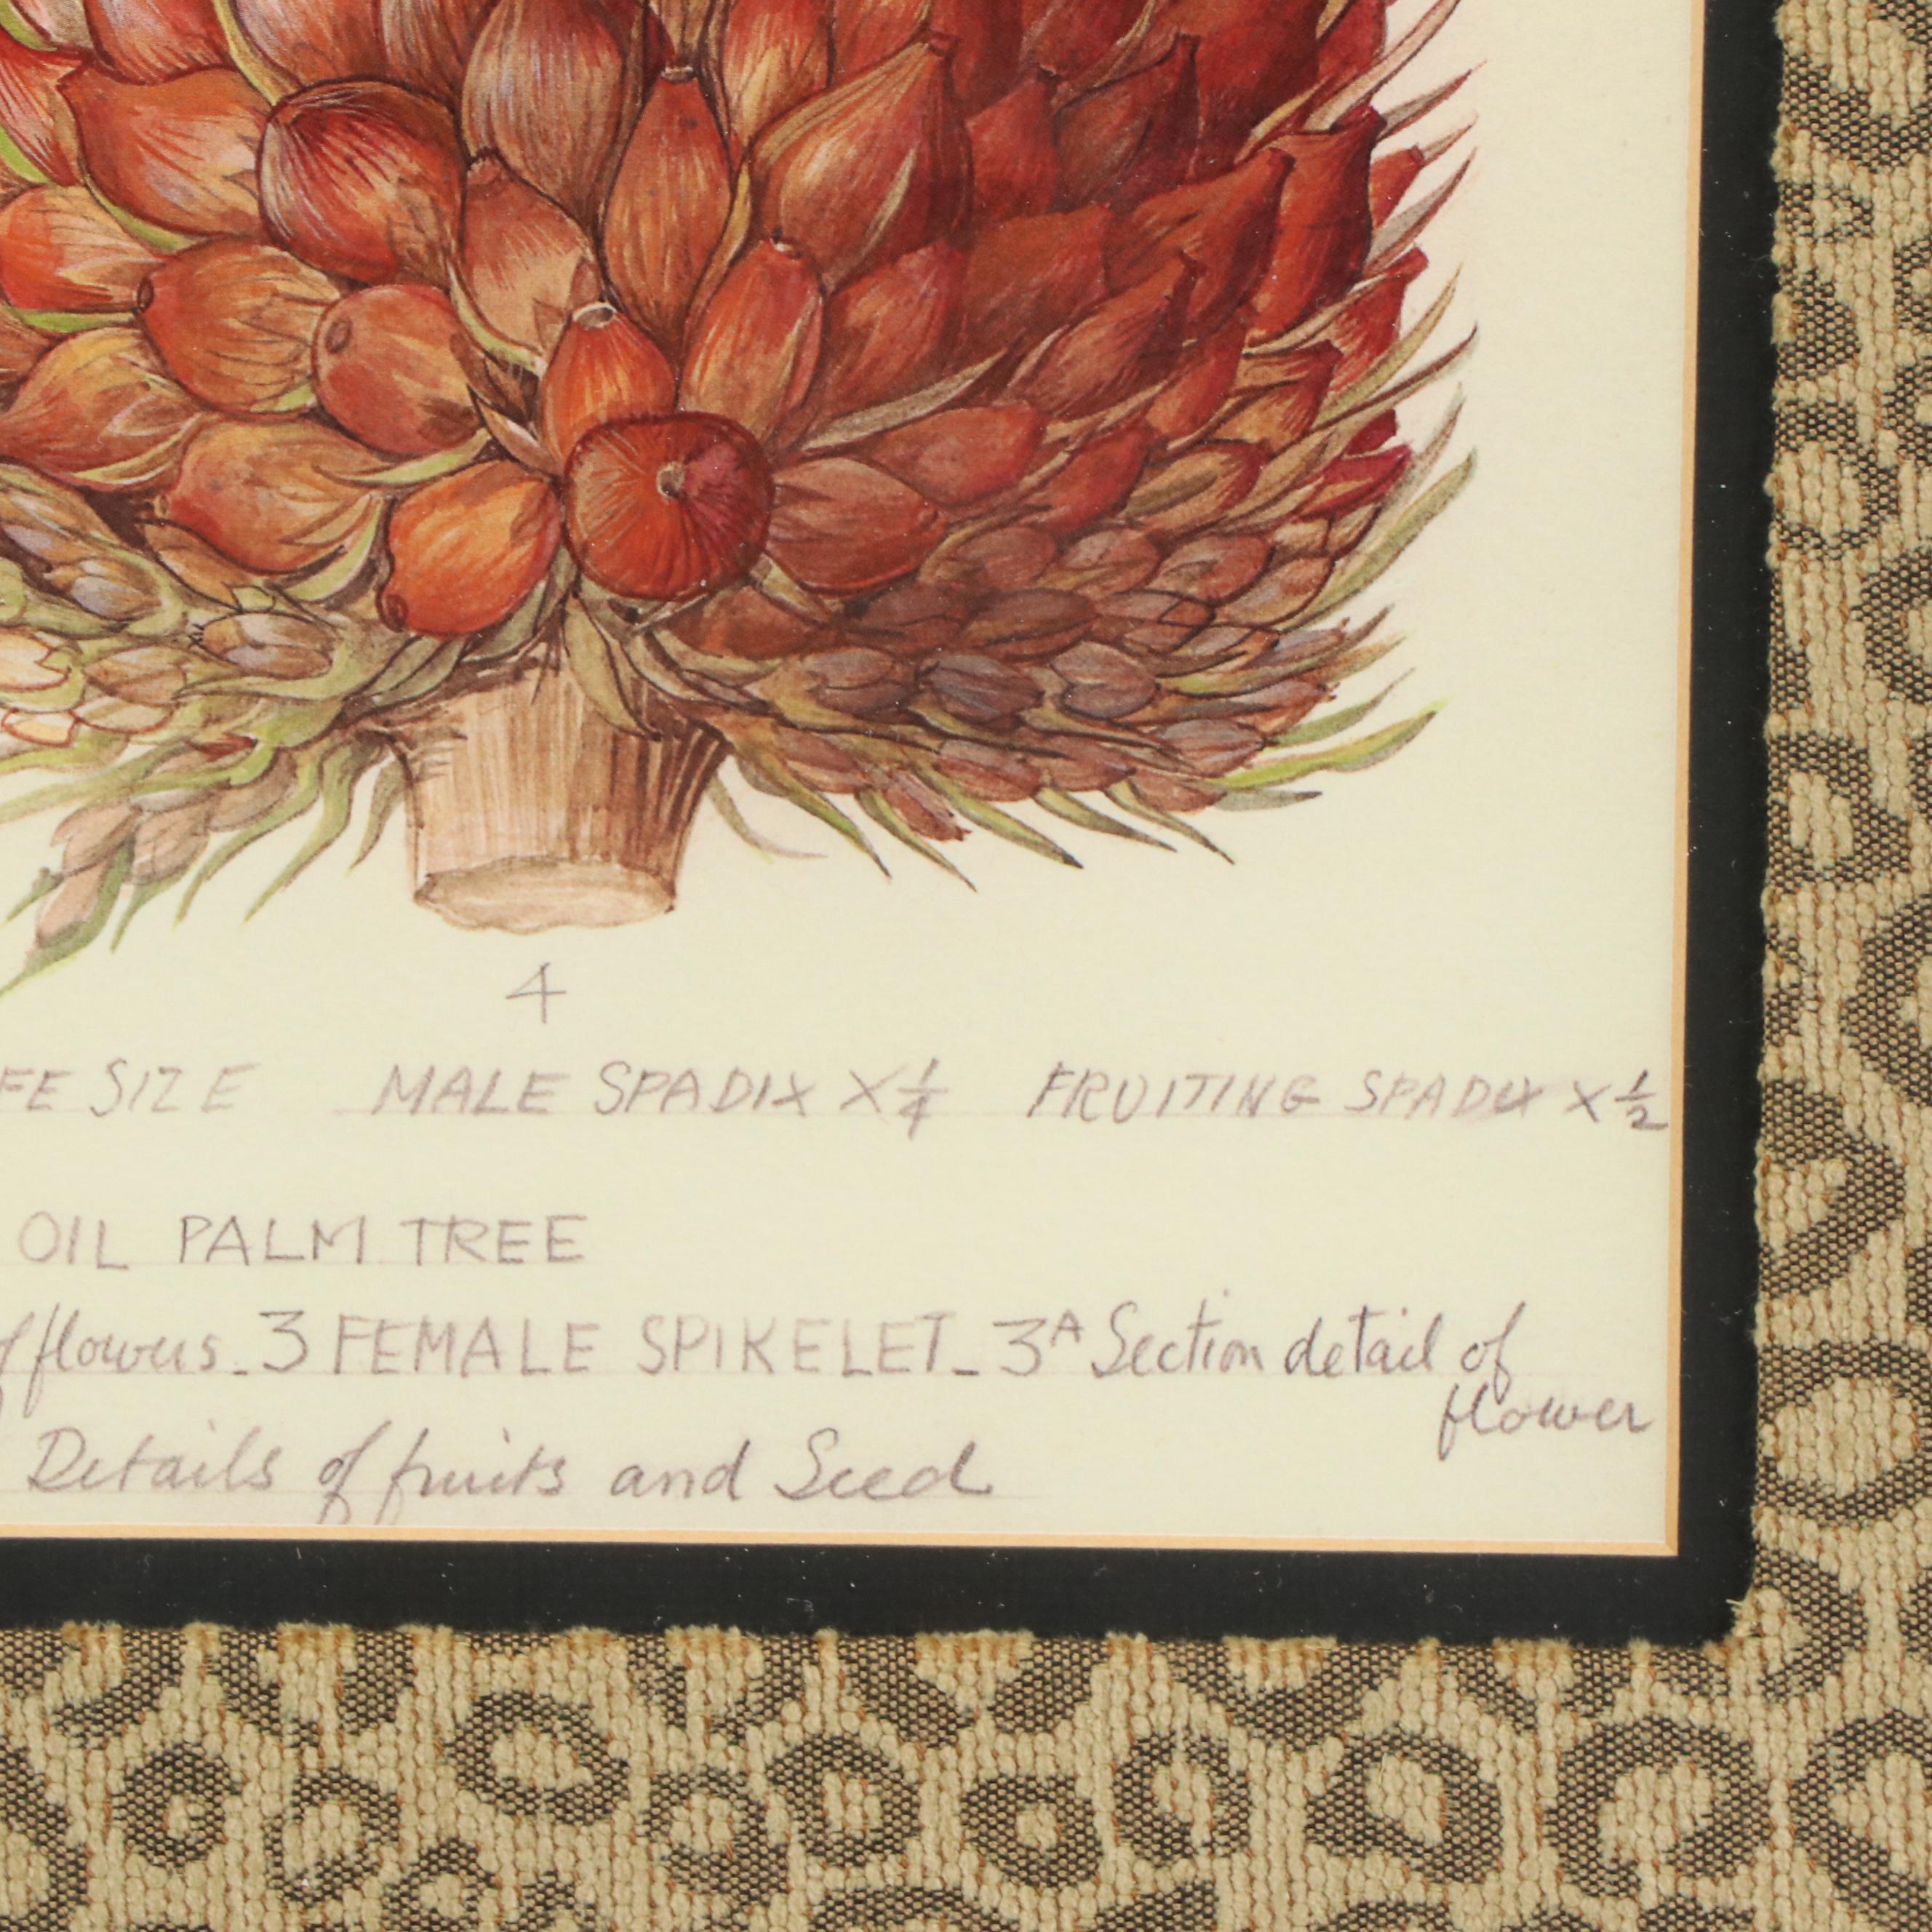 4
FE SIZE MALE SPADIX X 1/4 FRUITING SPADIX X 1/2
OIL PALM TREE
of flowers_3 FEMALE SPIKELET_3A Section detail of
flower
Details of fruits and Seed